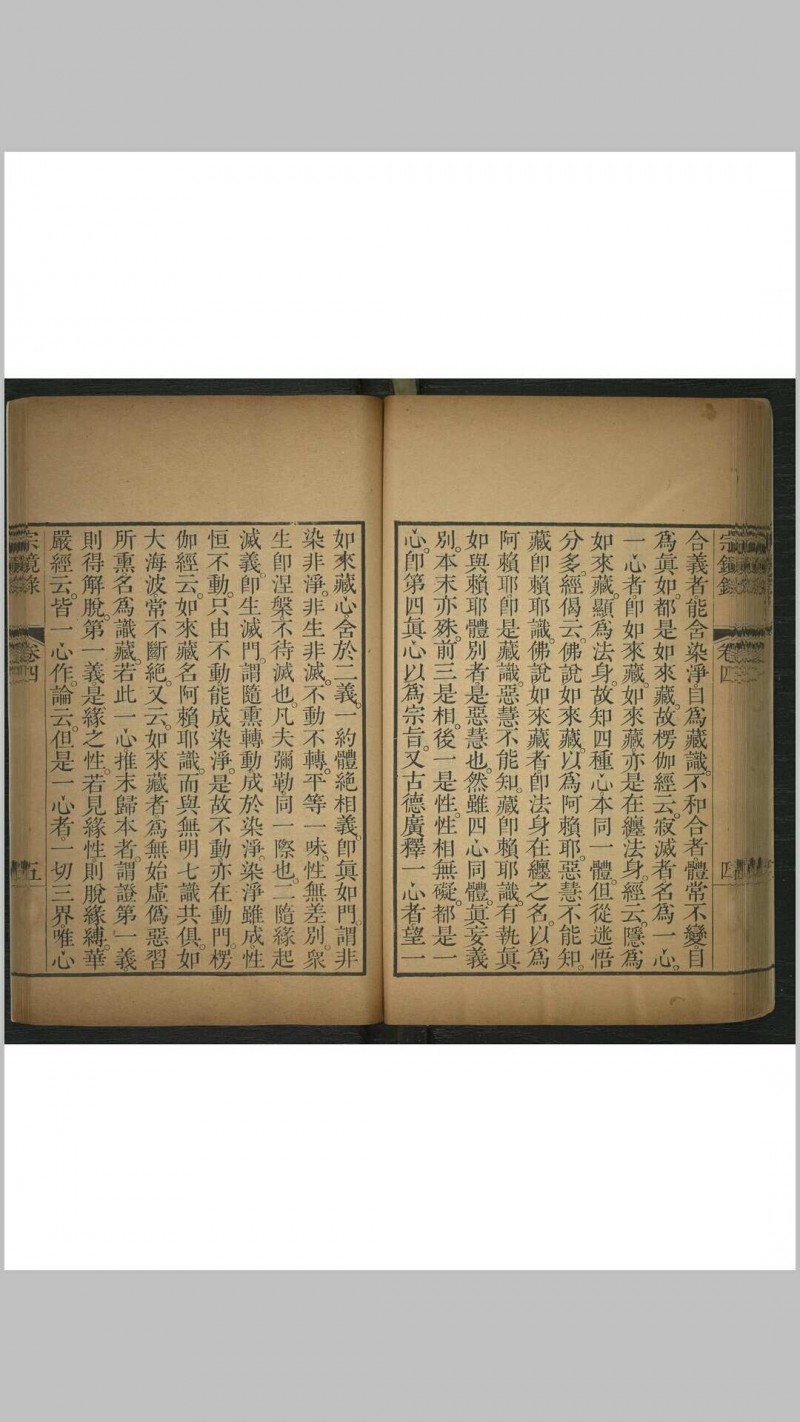 宗鏡錄
卷四
四
合義者能舍染淨自爲藏識。不和合者體常不變自
爲眞如。都是如來藏。故楞伽經云。寂滅者名爲一心。
一心者。卽如來藏。如來藏亦是在纏法身。經云。隱爲
如來藏。顯爲法身。故知四種心本同一體。但從迷悟
分多。經偈云。佛說如來藏。以爲阿賴耶。惡慧不能知。
藏卽賴耶識。佛說如來藏者。卽法身在纏之名。以爲
阿賴耶。卽是藏識。惡慧不能知。藏卽賴耶識。有執眞
如與賴耶體別者。是惡慧也。然雖四心同體。眞妄義
別。本末亦殊。前三是相。後一是性。性相無礙。都是一
心。卽第四眞心以爲宗旨。又古德廣釋一心者。望一
如來藏心舍於二義。一約體絕相義。卽眞如門。謂非
染非淨。非生非滅。不動不轉。平等一味。性無差別。衆
生卽涅槃不待滅也。凡夫彌勒同一際也。二隨緣起
滅義。卽生滅門。謂隨熏轉動成於染淨。染淨雖成性
恒不動。只由不動能成染淨。是故不動亦在動門。楞
伽經云。如來藏名阿賴耶識。而與無明七識共俱。如
大海波常不斷絕。又云。如來藏者。爲無始虛僞惡習
所熏。名爲識藏。若此一心推末歸本者。謂證第一義
則得解脫。第一義是緣之性。若見緣性則脫緣縛。華
嚴經云。皆一心作。論云。但是一心者。一切三界唯心
宗鏡錄
卷四
五